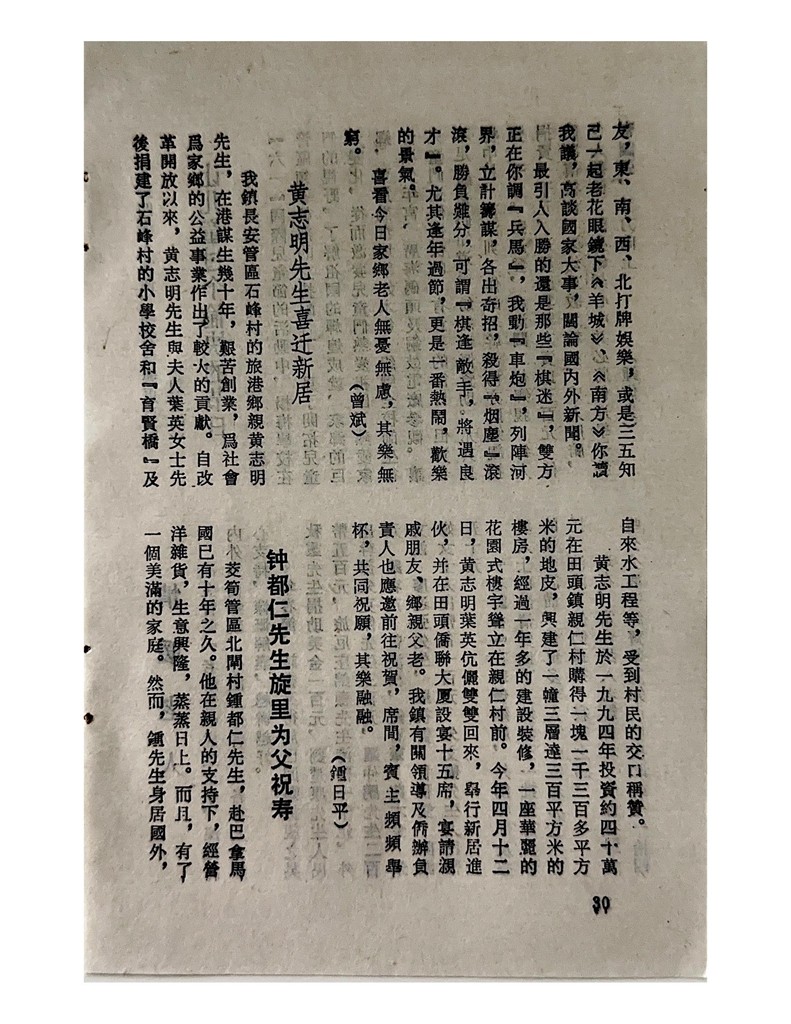 友，東、南、西、北打牌娛樂，或是三五知
己一起老花眼鏡下《羊城》、《南方》你讀
我議，高談國家大事，闊論國内外新聞。
最引人入勝的還是那些『棋迷』，雙方
正在你調『兵馬』，我動『車炮』，列陣河
界，立計籌謀，各出奇招，殺得『烟塵』滾
滾，勝負難分，可謂『棋逢敵手，將遇良
才』。尤其逢年過節，更是一番熱鬧，歡樂
的景氣。
喜看今日家鄉老人無憂無慮，其樂無
窮。
（曾斌）
黄志明先生喜迁新居
我鎮長安管區石峰村的旅港鄉親黄志明
先生，在港謀生幾十年，艱苦創業，爲社會
爲家鄉的公益事業作出了較大的貢獻。自改
革開放以來，黄志明先生與夫人葉英女士先
後捐建了石峰村的小學校舍和『育賢橋』及
自來水工程等，受到村民的交口稱贊。
黄志明先生於一九九四年投資約四十萬
元在田頭鎮親仁村購得一塊一千三百多平方
米的地皮，興建了一幢三層達三百平方米的
樓房，經過一年多的建設裝修，一座華麗的
花園式樓宇聳立在親仁村前。今年四月十二
日，黄志明葉英伉儷雙雙回來，舉行新居進
伙，并在田頭僑聯大厦設宴十五席，宴請親
戚朋友、鄉親父老。我鎮有關領導及僑辦負
責人也應邀前往祝賀，席間，賓主頻頻舉
杯，共同祝願，其樂融融。
（鍾日平）
钟都仁先生旋里为父祝寿
茭筍管區北閘村鍾都仁先生，赴巴拿馬
國已有十年之久。他在親人的支持下，經營
洋雜貨，生意興隆，蒸蒸日上。而且，有了
一個美滿的家庭。然而，鍾先生身居國外，
30